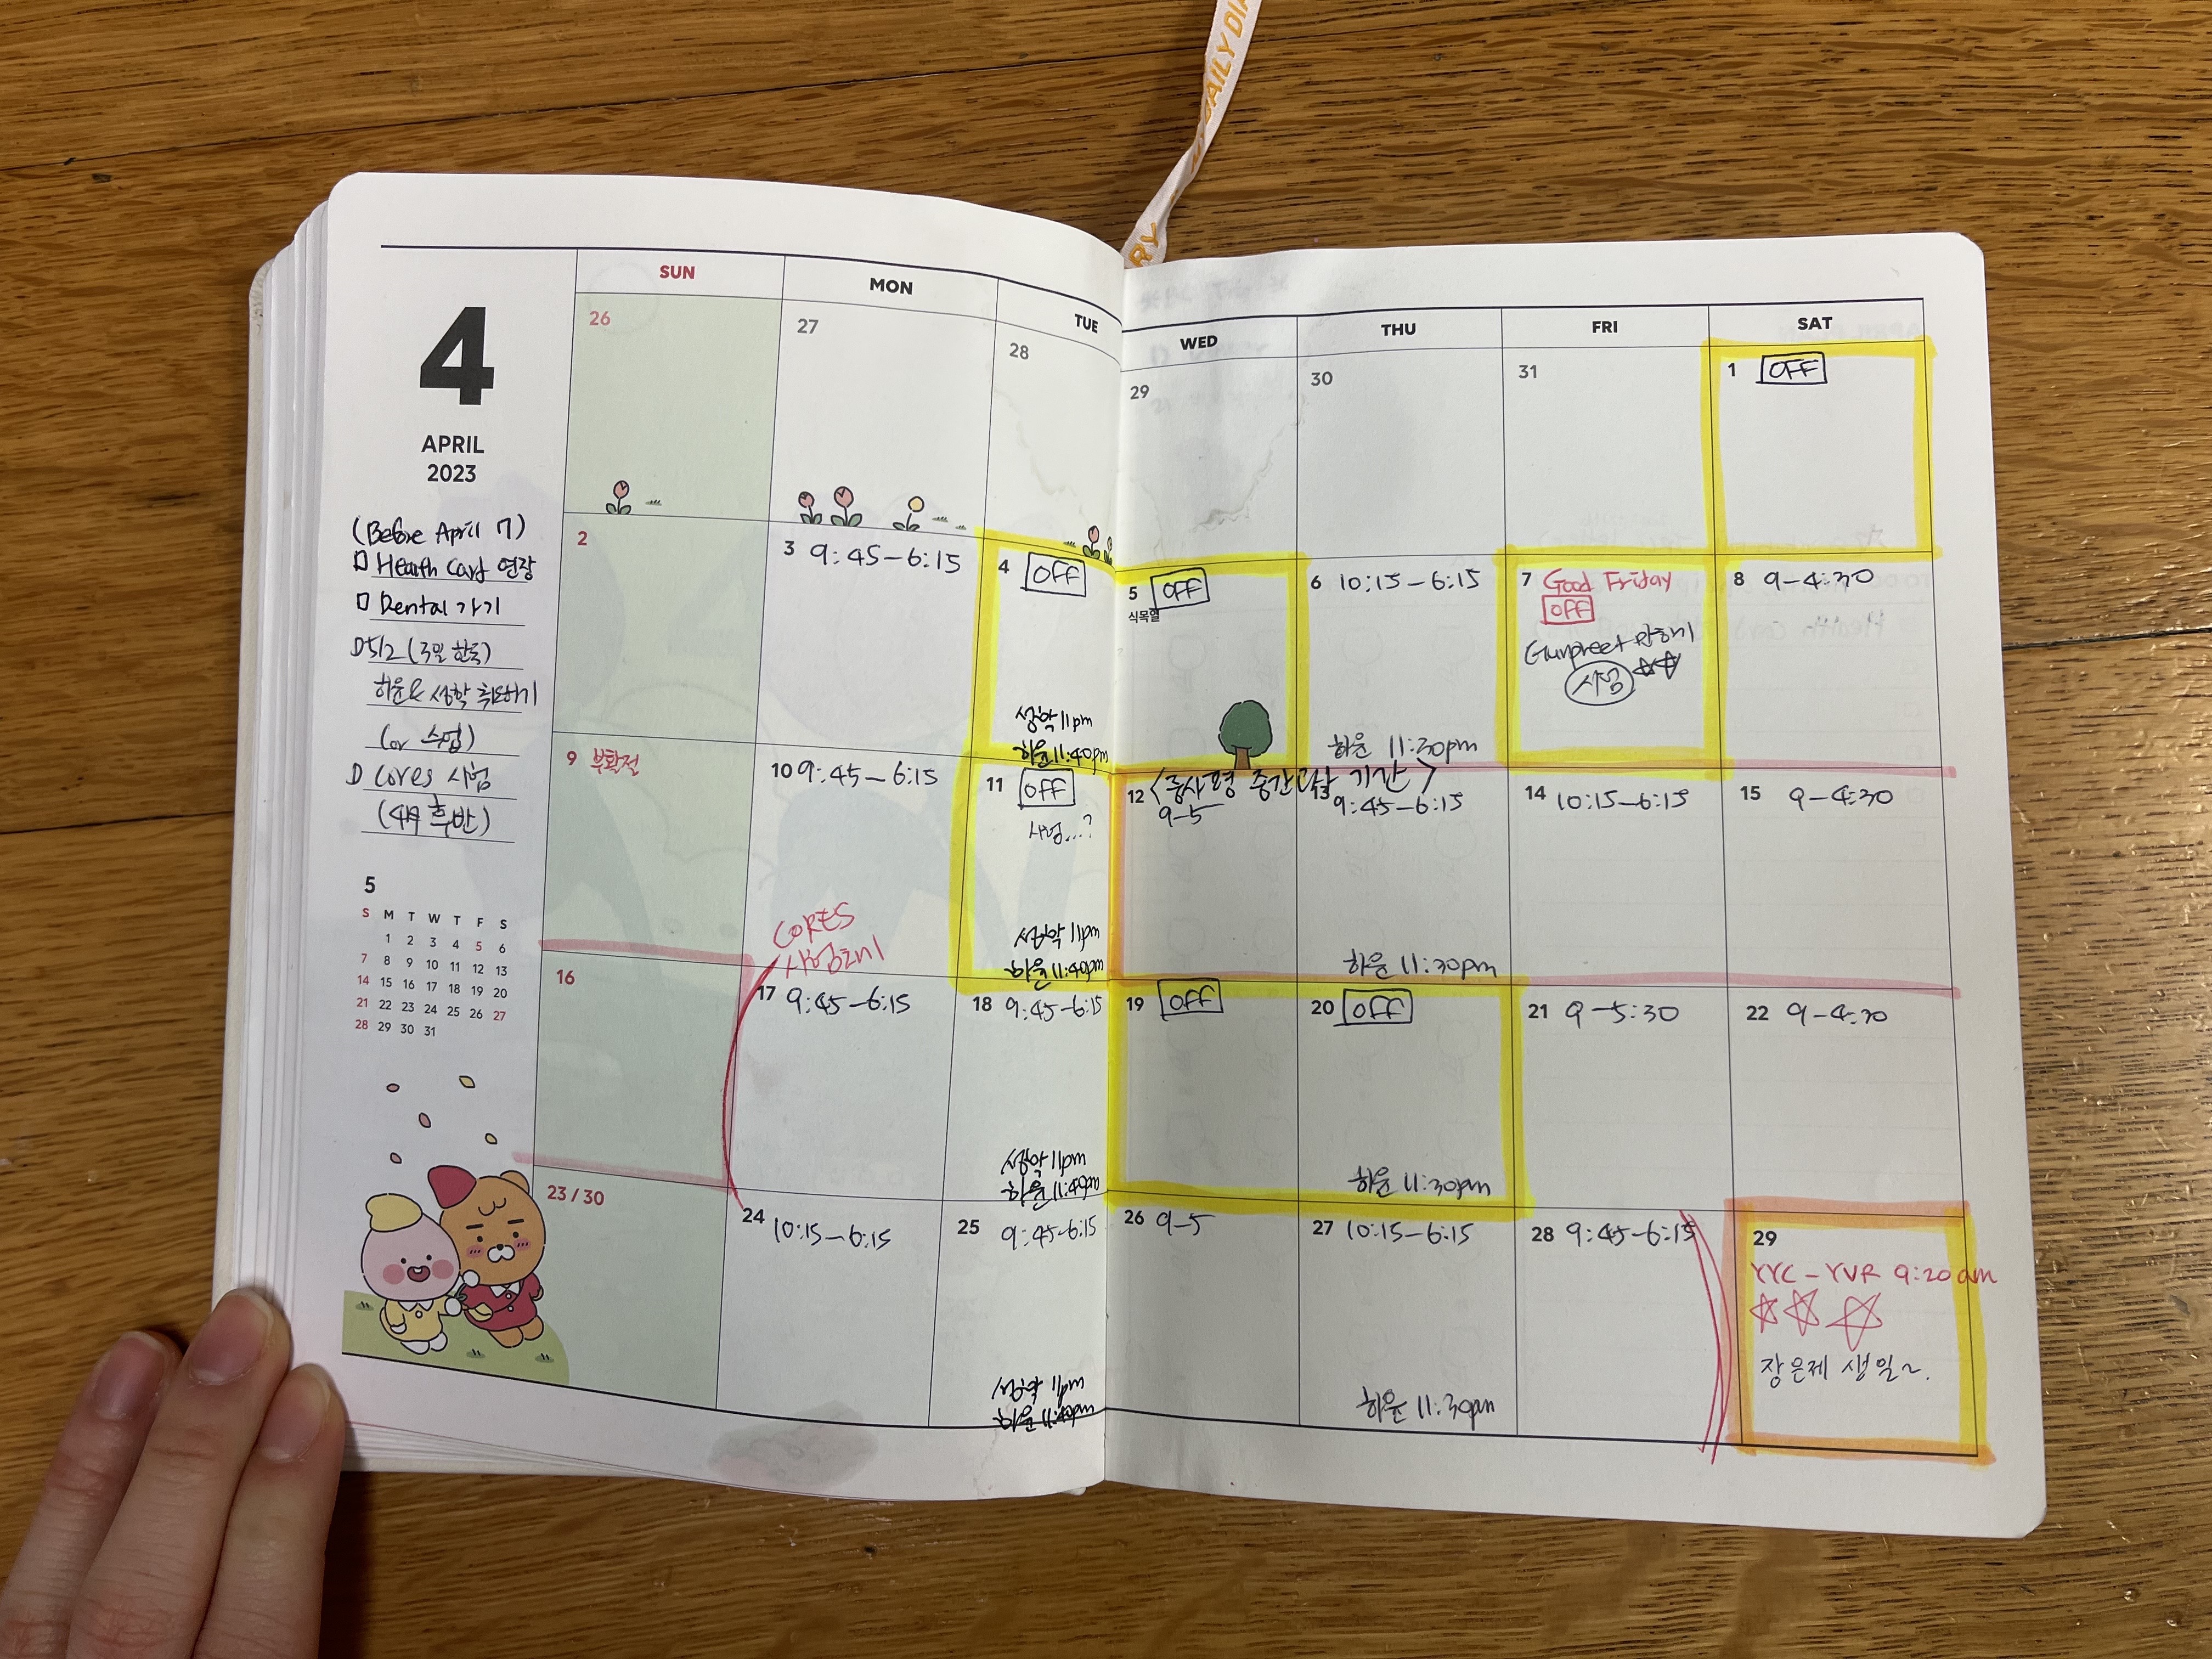 DAILY DIA
RY
4
APRIL
2023
(Before April 7)
□ Health Card 연장
□ Dental 가기
5/2 (3월 한독)
하윤 & 성학
(or 수업)
□ Cores 시험
(4월 후반)
5
S M T W T F S
1 2 3 4 5 6
7 8 9 10 11 12 13
14 15 16 17 18 19 20
21 22 23 24 25 26 27
28 29 30 31
SUN MON TUE WED THU FRI SAT
26
27
28
29
30
31
1 OFF
2
3 9:45-6:15
4 OFF
성학 11pm
하윤 11:40pm
5 OFF
식목일
6 10:15-6:15
하윤 11:30pm
7 Good Friday
OFF
Gunpreet
시험
8 9-4:30
9 부활절
10 9:45-6:15
11 OFF
시험...?
성학 11pm
하윤 11:40pm
중간고사 기간>
12
9-5
13 9:45-6:15
하윤 11:30pm
14 10:15-6:15
15 9-4:30
CORES
16
17 9:45-6:15
18 9:45-6:15
성학 11pm
하윤 11:40pm
19 OFF
20 OFF
하윤 11:30pm
21 9-5:30
22 9-4:30
23 / 30
24 10:15-6:15
25 9:45-6:15
성학 11pm
하윤 11:40pm
26 9-5
27 10:15-6:15
하윤 11:30pm
28 9:45-6:15
29
YYC-YVR 9:20am
장은제 생일~.